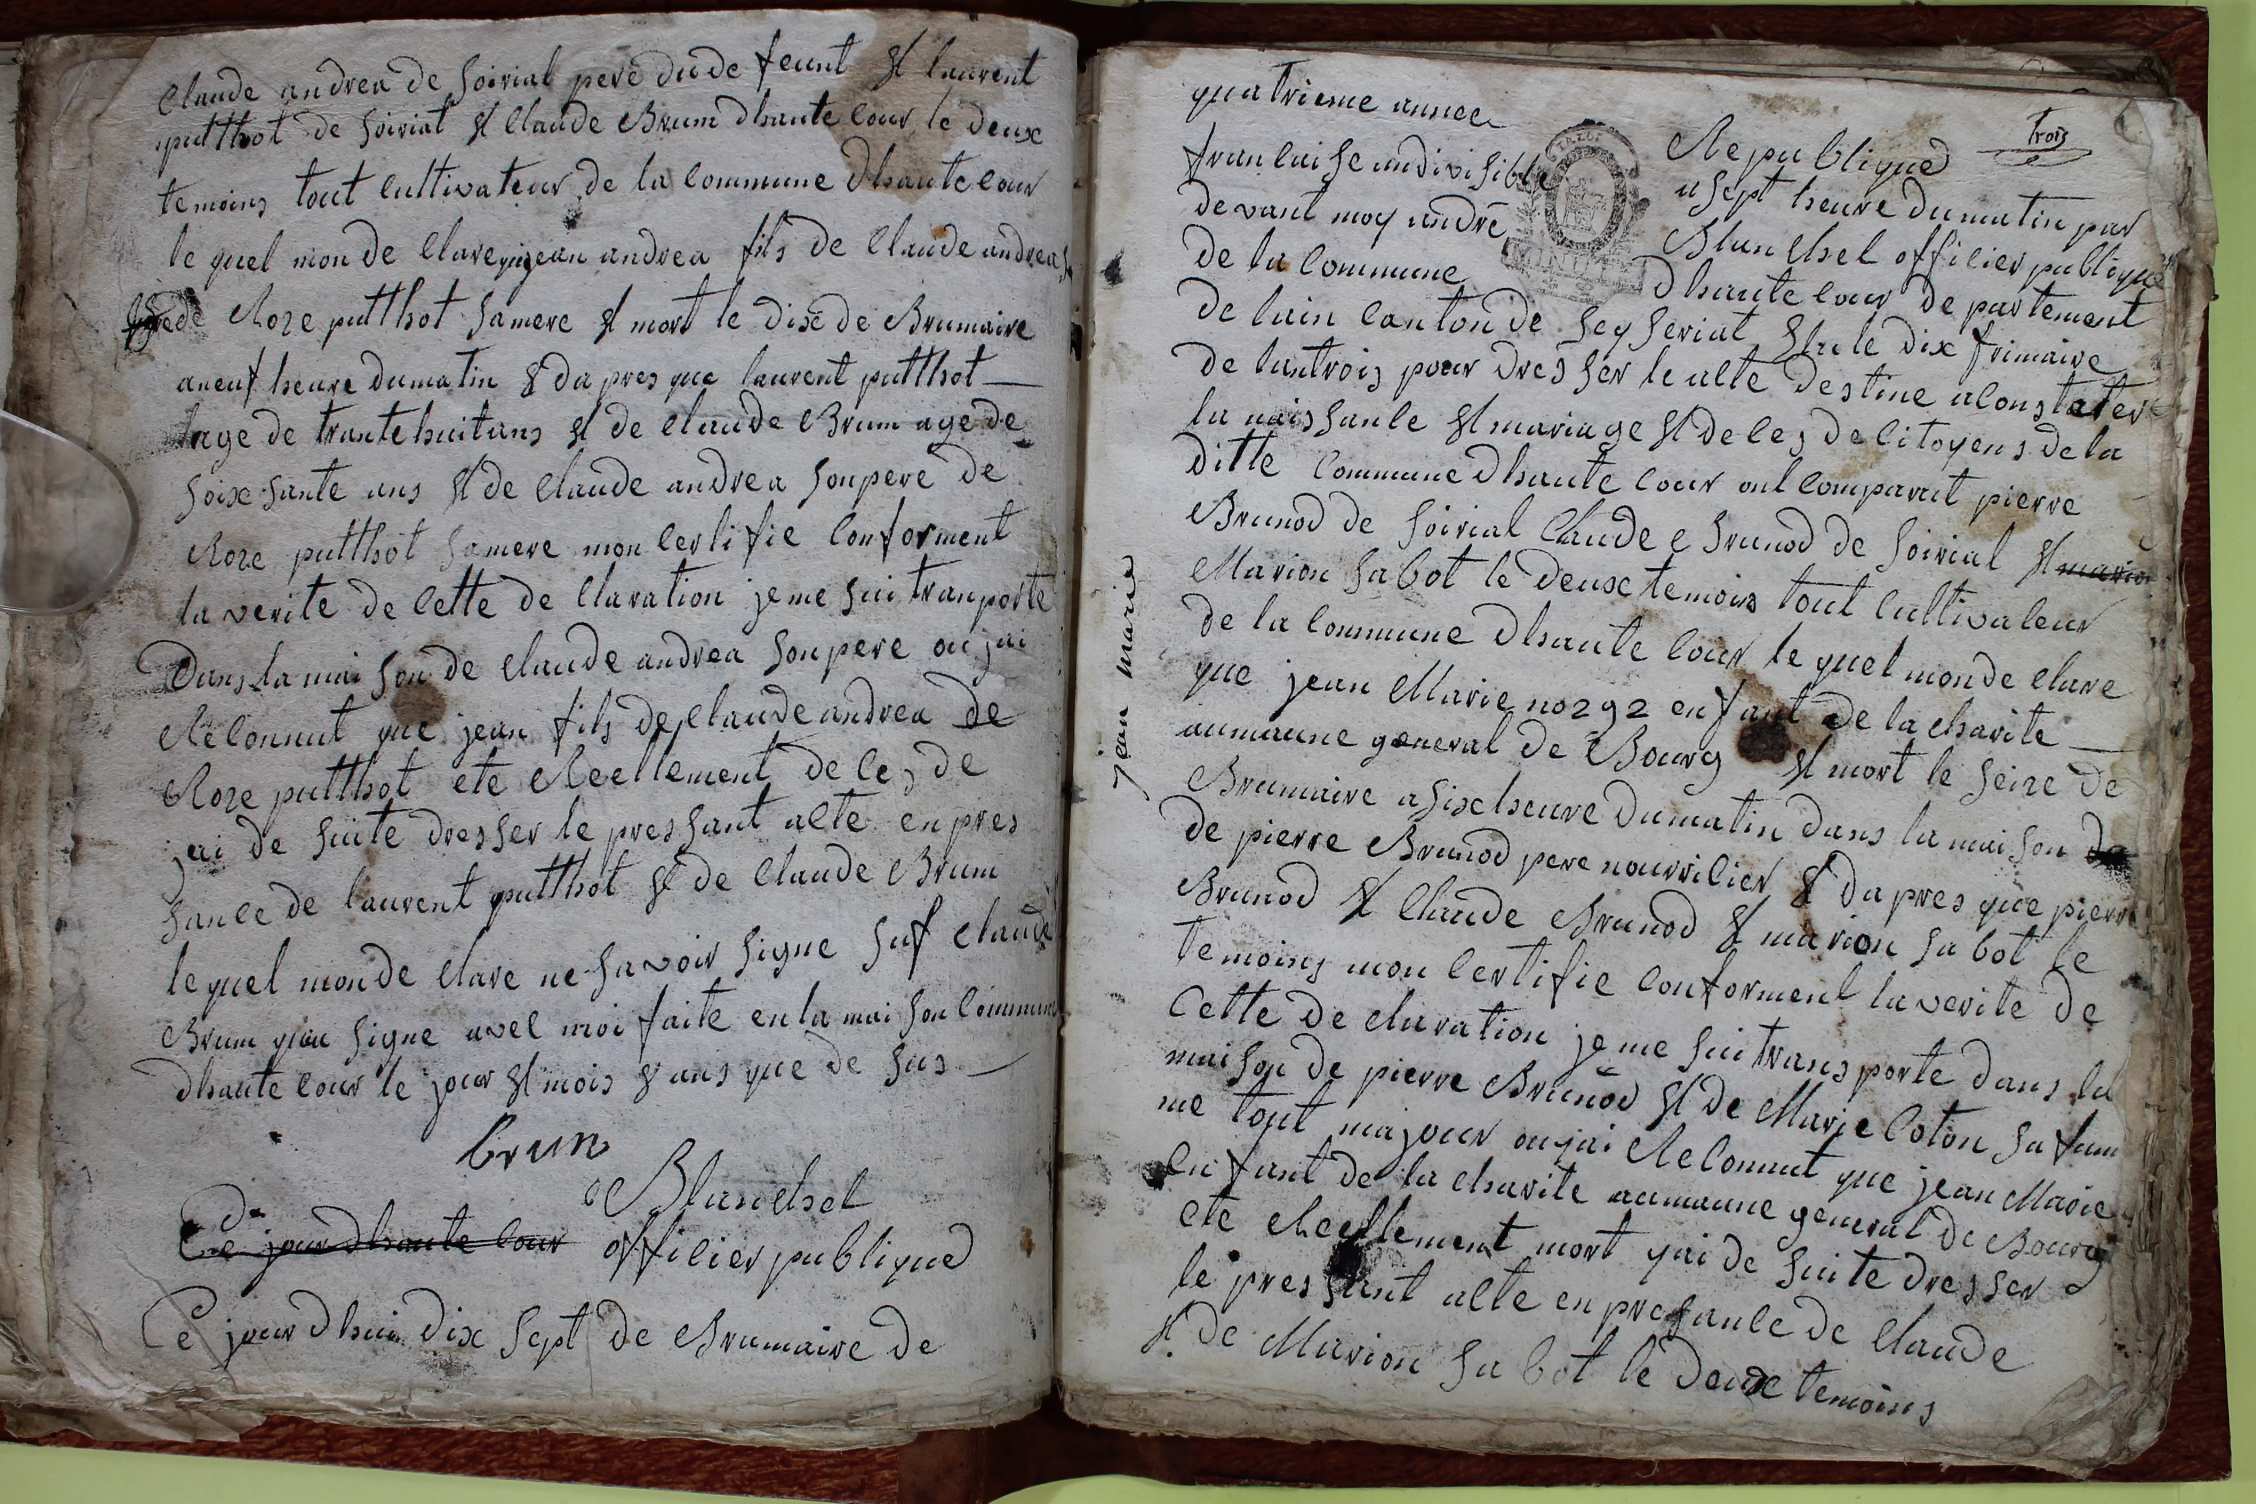 Claude andrea de soirial pere dude feunt et laurent
putthot de soiriat et Claude Brum dhaute cour le deux
temoins tout cultivateur de la commune dhaute cour
le quel mon de clare que jean andrea fils de Claude andrea
de Roze putthot sa mere et mort le dix de Brumaire
aneuf heure dumatin & da pres que laurent putthot
lage de trante huit ans et de Claude Brum age de
soixe sante ans et de Claude andrea son pere de
Roze putthot samere mon certifie conforment
la verite de cette de claration je me sui tranporte
Dans la mai son de Claude andrea son pere ou jai
Reconnut que jean fils de Claude andrea de
Roze putthot ete Reellement de ces de
jai de suite dresser le pressant acte en pres
sance de laurent putthot et de Claude Brum
le quel mon de clare ne savoir signe suf Claude
Brum qiau signe avec moi faite en la mai son commune
dhaute cour le jour et mois & ans que de sus
brun
Blanchet
officier publique
Ce jour dhaute cour
Ce jour dhui dix sept de Brumaire de
trois
quatrieme annee Republique
francaise indivisible a sept heure dumatin par
devant moy andré Blanchet officier publique
de la commune dhaute cour de partement
de lain canton de seyseriat elu le dix frimaire
de lantrois pour dresser le acte destine a constater
la naissance et mariage et de ces de citoyens de la
ditte commune dhaute cour ont comparut pierre
Brunod de soirial Claude Brunod de soirial et marion
Marion sabot le deux temoins tout cultivateur
de la commune dhaute cour le quel mon de clare
que jean Marie no 292 enfant de la charite
aumaune general de Bourg et mort le seize de
Brumaire a six heure dumatin dans la mai son de
de pierre Brunod pere nourricier & da pres que pierre
Brunod et Claude Brunod & marion sabot le
temoins mon certifie conforment la verite de
cette de claration je me sui transporte dans la
maison de pierre Brunod et de Marie Coton sa fam
me tout majour ou jai Reconnut que jean Marie
enfant de la charite aumaune general de Bourg
ete Reellement mort jai de suite dresser
le pressant acte en presance de Claude
et de Marion sabot le deux temoins
jean marie
MINUTE